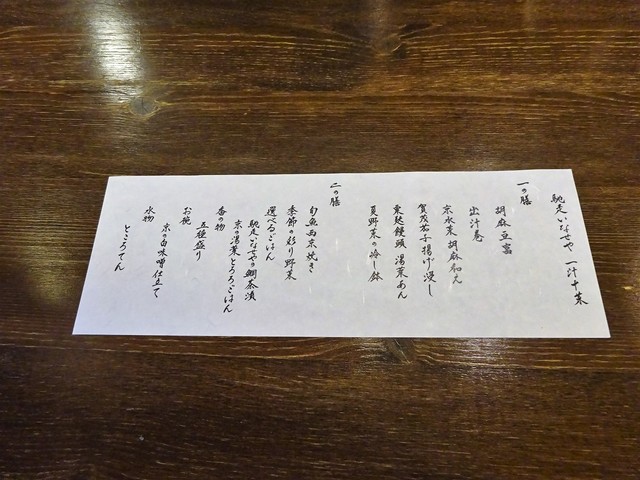 馳走いなせや 一汁十菜
一の膳
胡麻豆富
出汁巻
京水菜 胡麻和え
賀茂茄子揚げ浸し
粟麩饅頭 湯葉あん
夏野菜の冷し鉢
二の膳
旬魚西京焼き
季節の彩り野菜
選べるごはん
馳走いなせやの鯛茶漬
京の湯葉とろろごはん
香の物
五種盛り
お椀
京の白味噌仕立て
水物
ところてん